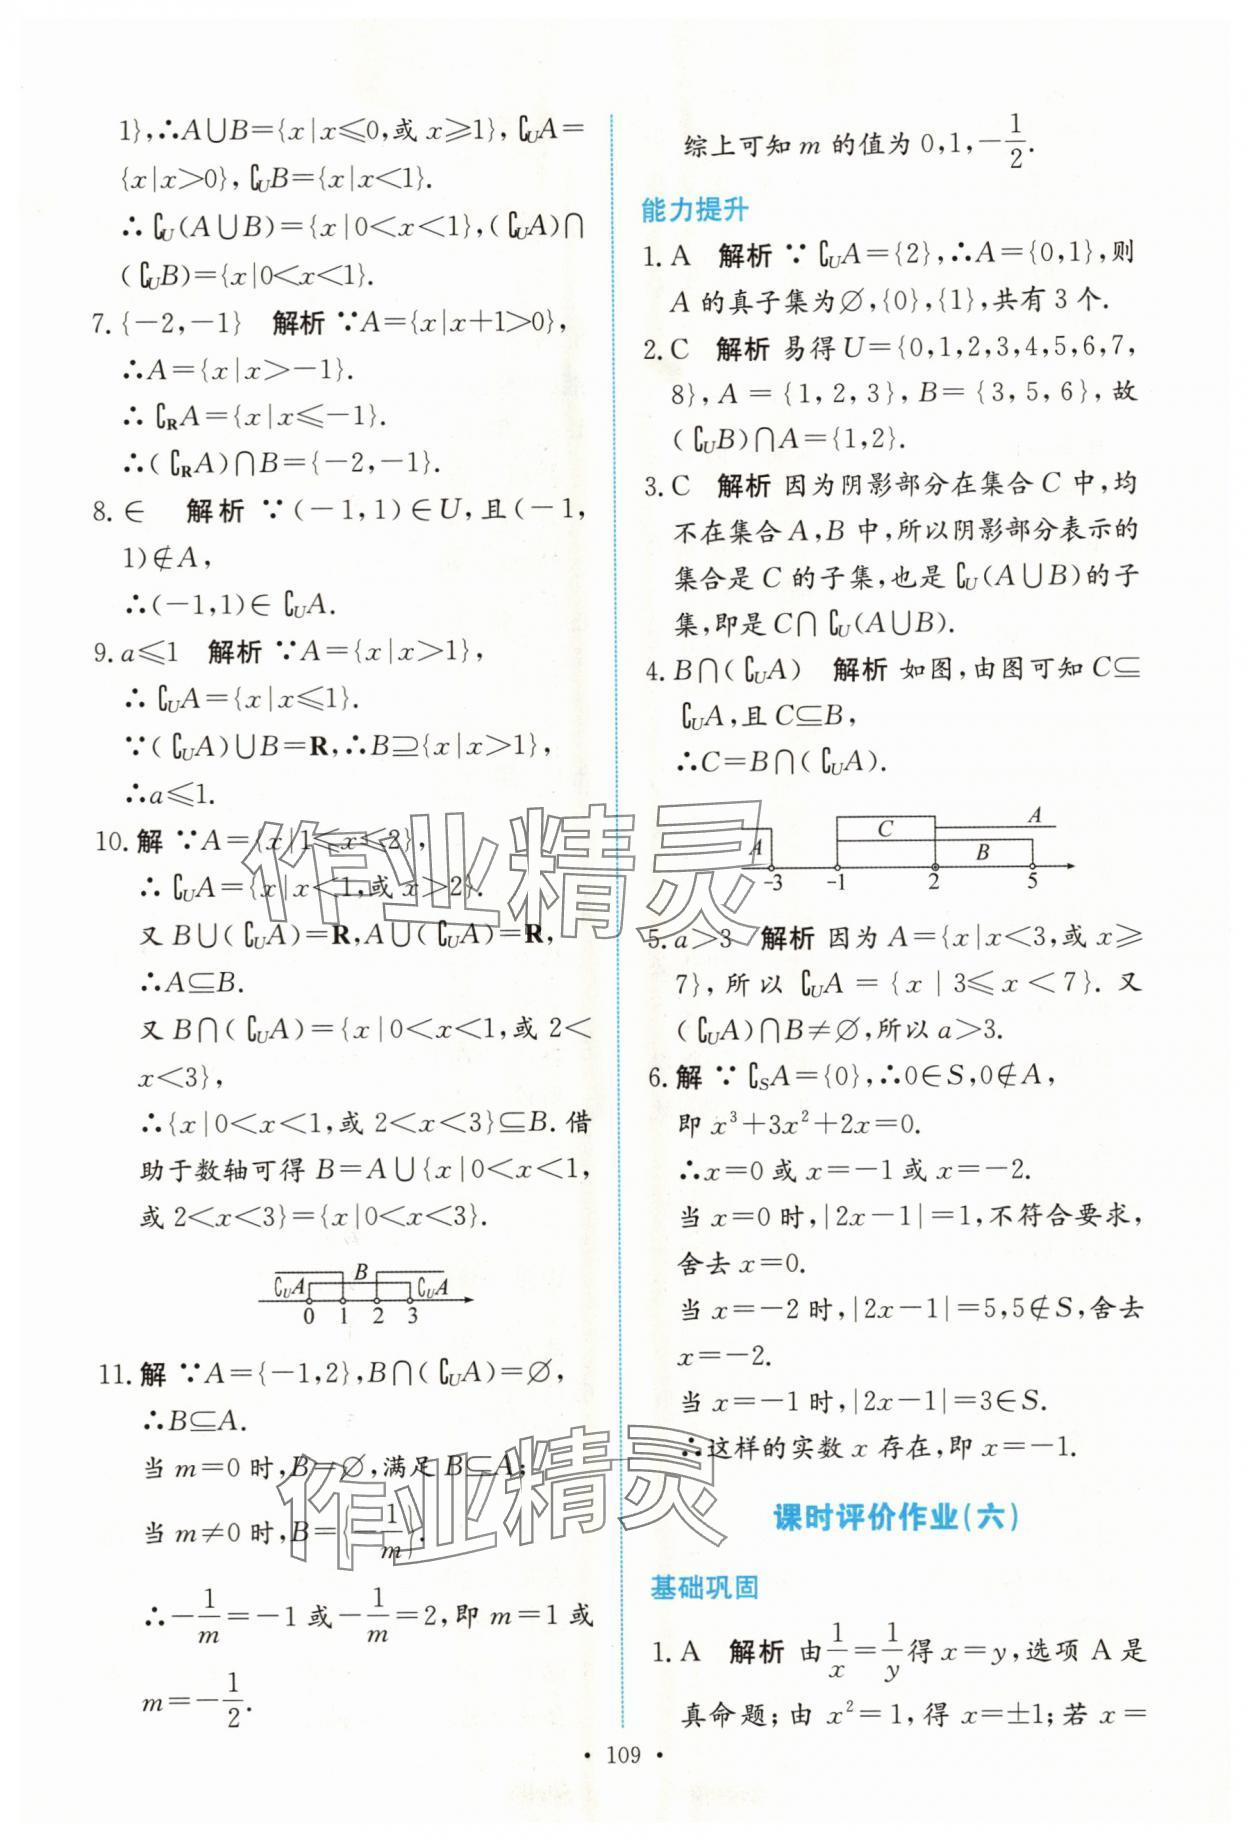 1},∴A∪B={x|x≤0,或 x≥1},∁UA=
{x|x>0},∁UB={x|x<1}.
∴∁U(A∪B)={x|0<x<1},(∁UA)∩
(∁UB)={x|0<x<1}.
7. {-2,-1} 解析 ∵A={x|x+1>0},
∴A={x|x>-1}.
∴∁RA={x|x≤-1}.
∴(∁RA)∩B={-2,-1}.
8. ∈ 解析 ∵(-1,1)∈U,且(-1,
1)∉A,
∴(-1,1)∈∁UA.
9. a≤1 解析 ∵A={x|x>1},
∴∁UA={x|x≤1}.
∵(∁UA)∪B=R,∴B⊇{x|x>1},
∴a≤1.
10. 解 ∵A={x|1≤x≤2},
∴∁UA={x|x<1,或 x>2}.
又 B∪(∁UA)=R,A∪(∁UA)=R,
∴A⊆B.
又 B∩(∁UA)={x|0<x<1,或 2<
x<3},
∴{x|0<x<1,或 2<x<3}⊆B.借
助于数轴可得 B=A∪{x|0<x<1,
或 2<x<3}={x|0<x<3}.
∁UA B ∁UA
0 1 2 3
11. 解 ∵A={-1,2},B∩(∁UA)=∅,
∴B⊆A.
当 m=0 时,B=∅,满足 B⊆A;
当 m≠0 时,B={-1/m}.
∴-1/m=-1 或-1/m=2,即 m=1 或
m=-1/2.
综上可知 m 的值为 0,1,-1/2.
能力提升
1. A 解析 ∵∁UA={2},∴A={0,1},则
A 的真子集为∅,{0},{1},共有 3 个.
2. C 解析 易得 U={0,1,2,3,4,5,6,7,
8},A={1,2,3},B={3,5,6},故
(∁UB)∩A={1,2}.
3. C 解析 因为阴影部分在集合 C 中,均
不在集合 A,B 中,所以阴影部分表示的
集合是 C 的子集,也是∁U(A∪B)的子
集,即是 C∩∁U(A∪B).
4. B∩(∁UA) 解析 如图,由图可知 C⊆
∁UA,且 C⊆B,
∴C=B∩(∁UA).
A C B A
-3 -1 2 5
5. a>3 解析 因为 A={x|x<3,或 x≥
7},所以∁UA={x|3≤x<7}.又
(∁UA)∩B≠∅,所以 a>3.
6. 解 ∵∁SA={0},∴0∈S,0∉A,
即 x³+3x²+2x=0.
∴x=0 或 x=-1 或 x=-2.
当 x=0 时,|2x-1|=1,不符合要求,
舍去 x=0.
当 x=-2 时,|2x-1|=5,5∉S,舍去
x=-2.
当 x=-1 时,|2x-1|=3∈S.
∴这样的实数 x 存在,即 x=-1.
课时评价作业(六)
基础巩固
1. A 解析 由1/x=1/y得 x=y,选项 A 是
真命题;由 x²=1,得 x=±1;若 x=
• 109 •
作业精灵
作业精灵